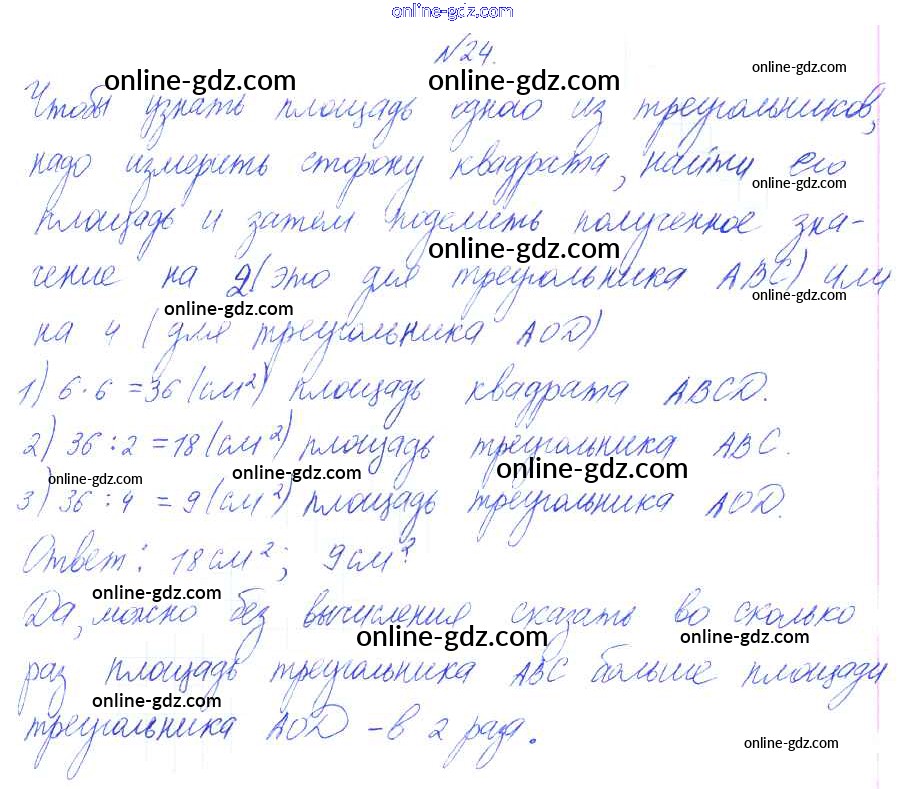 online-gdz.com
№24.
online-gdz.com online-gdz.com online-gdz.com
Чтобы узнать площадь однао из треугольников,
надо измерить сторону квадрата, найти его
online-gdz.com
площадь и затем поделить полученное зна-
online-gdz.com
чение на 2 (это для треугольника ABC) или
online-gdz.com online-gdz.com
на 4 (для треугольника AOD)
1) 6·6=36 (см²) площадь квадрата ABCD.
2) 36:2=18 (см²) площадь треугольника ABC.
online-gdz.com online-gdz.com online-gdz.com
3) 36:4=9 (см²) площадь треугольника AOD.
Ответ: 18 см²; 9 см²
online-gdz.com
Да, можно без вычисления сказать во сколько
online-gdz.com online-gdz.com
раз площадь треугольника ABC больше площади
online-gdz.com
треугольника AOD – в 2 раза.
online-gdz.com